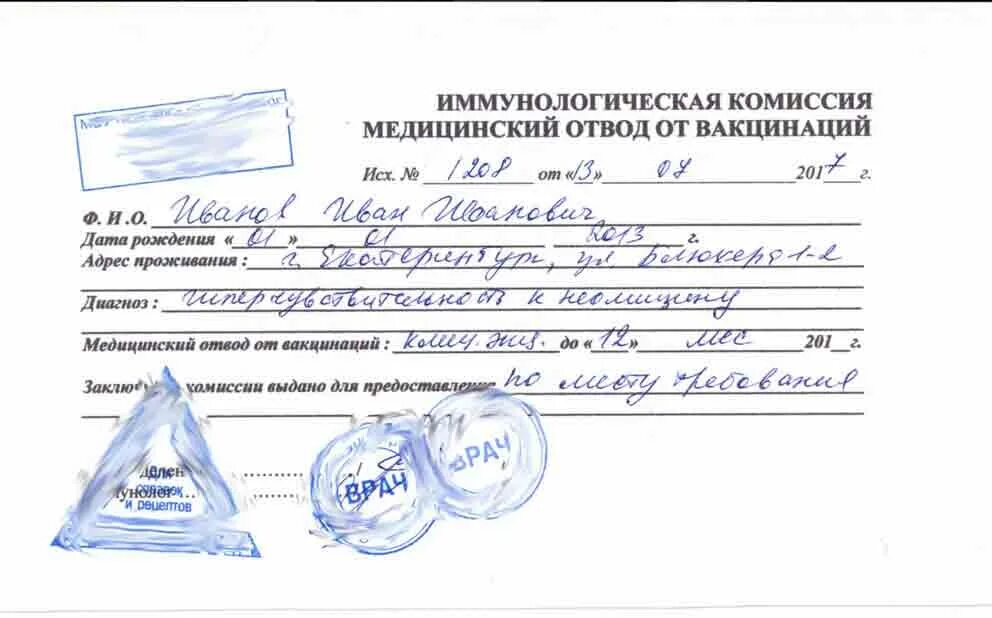 ИММУНОЛОГИЧЕСКАЯ КОМИССИЯ
МЕДИЦИНСКИЙ ОТВОД ОТ ВАКЦИНАЦИЙ
Исх. № 1208 от «13» 07 2017 г.
Ф. И .О. Иванов Иван Иванович
Дата рождения «01» 01 2013 г.
Адрес проживания : г. Екатеринбург, ул Блюхера 1-2
Диагноз : гиперчувствительность к неомицину
Медицинский отвод от вакцинаций : до «12» мес 201__г.
комиссии выдано для предоставления по месту требования
для
справок
и рецептов
ВРАЧ
ВРАЧ